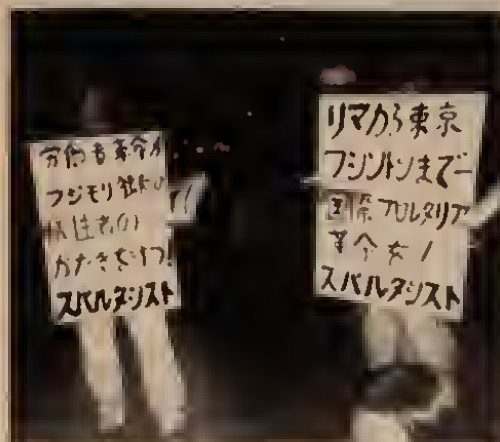 労働者革命が
フジモリ
犠牲者の
かたきをうつ!
スパルタシスト
リマから東京
ワシントンまで—
国際プロレタリア
革命を!
スパルタシスト